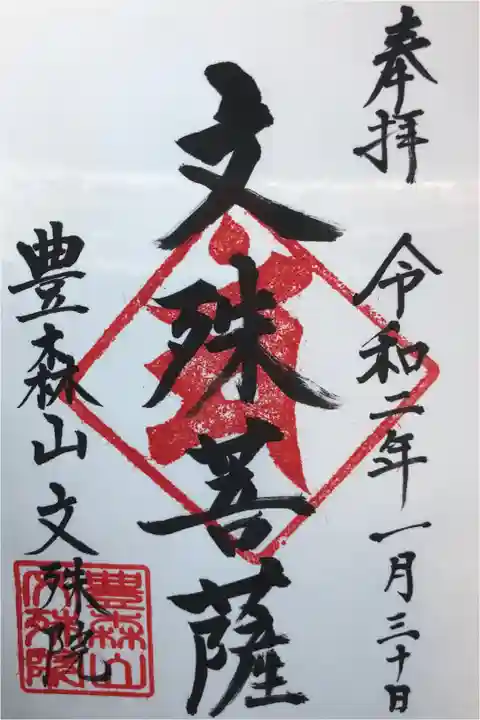 奉拝
令和二年一月三十日
文殊菩薩
豊森山文殊院
豊森山
文殊院